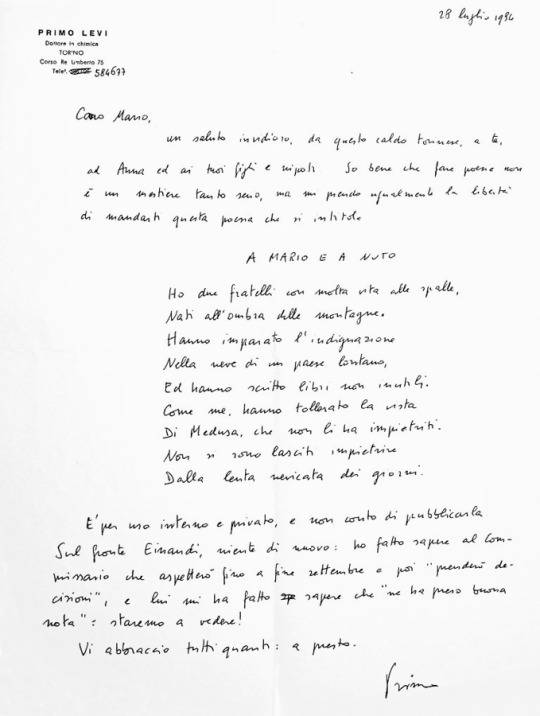 28 luglio 1984
PRIMO LEVI
Dottore in chimica
TORINO
Corso Re Umberto 75
Telef. 584677
Caro Mario,
un saluto invidioso, da questo caldo torinese, a te,
ad Anna ed ai tuoi figli e nipoti. So bene che fare poesie non
è un mestiere tanto serio, ma mi prendo ugualmente la libertà
di mandarti questa poesia che si intitola
A MARIO E A NUTO
Ho due fratelli con molta vita alle spalle,
Nati all'ombra delle montagne.
Hanno imparato l'indignazione
Nella neve di un paese lontano,
Ed hanno scritto libri non inutili.
Come me, hanno tollerato la vista
Di Medusa, che non li ha impietriti.
Non si sono lasciati impietrire
Dalla lenta nevicata dei giorni.
E' per uso interno e privato, e non conto di pubblicarla.
Sul fronte Einaudi, niente di nuovo: ho fatto sapere al Com-
missario che aspetterò fino a fine settembre e poi "prenderò de-
cisioni", e lui mi ha fatto sapere che "ne ha preso buona
nota": staremo a vedere!
Vi abbraccio tutti quanti: a presto.
Primo